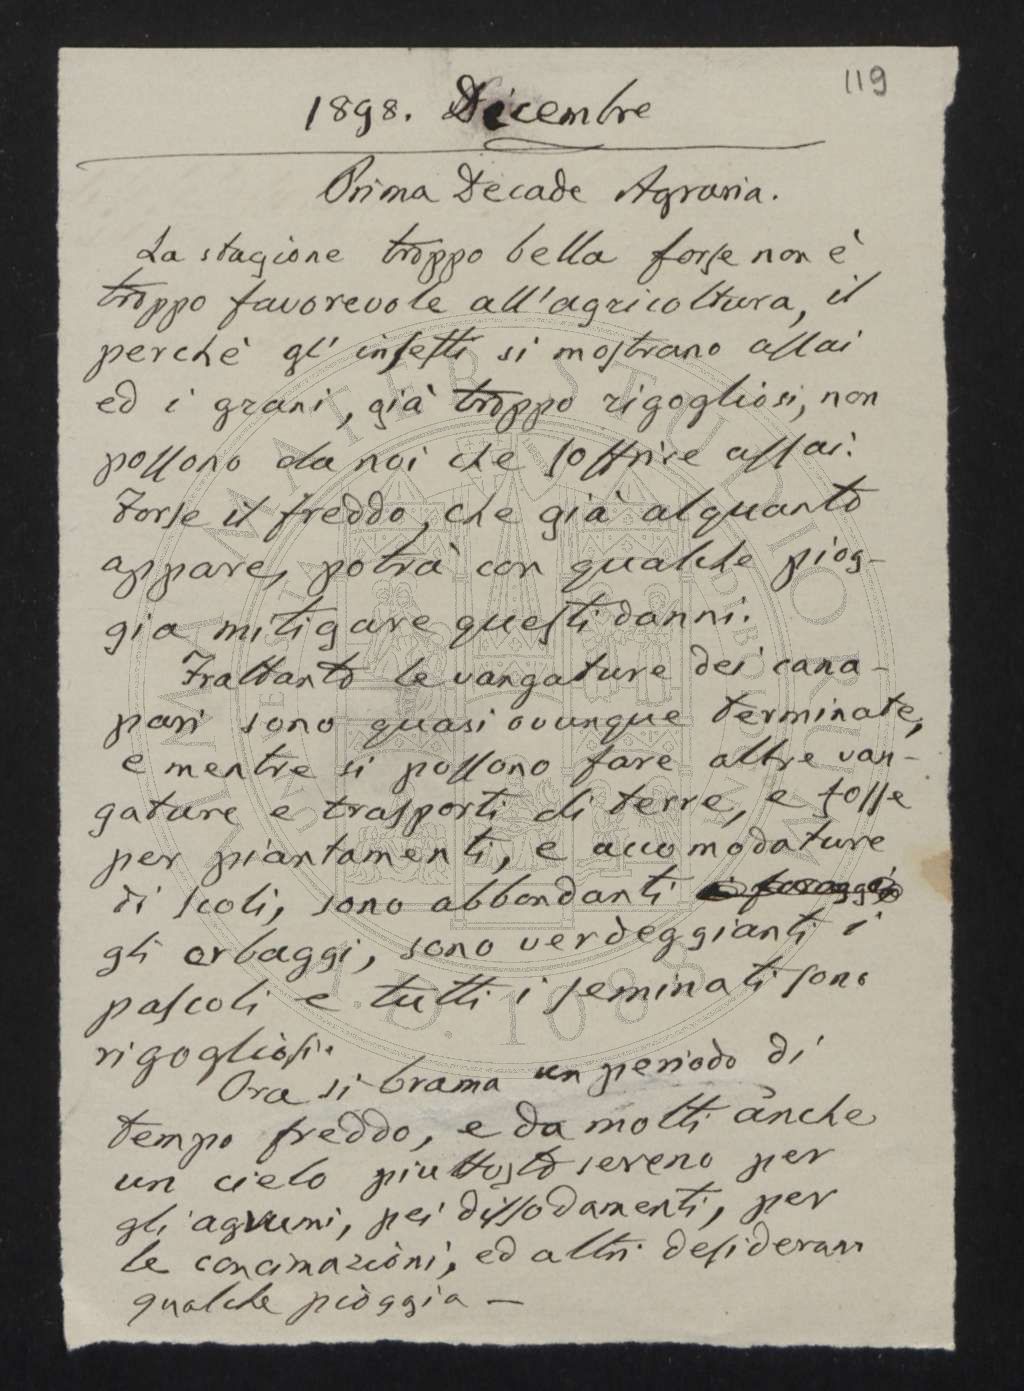 119
1898. Dicembre
Prima Decade Agraria.
La stagione troppo bella forse non è
troppo favorevole all'agricoltura, il
perchè gl'insetti si mostrano assai
ed i grani, già troppo rigogliosi, non
possono da noi che soffrire assai.
Forse il freddo, che già alquanto
appare, potrà con qualche piog-
gia mitigare questi danni.
Frattanto le vangature dei cana-
pari sono quasi ovunque terminate,
e mentre si possono fare altre van-
gature e trasporti di terre, e fosse
per piantamenti, e accomodature
di scoli, sono abbondanti
gli erbaggi, sono verdeggianti i
pascoli e tutti i seminati sono
rigogliosi.
Ora si brama un periodo di
tempo freddo, e da molti anche
un cielo piuttosto sereno per
gli agrumi, pei dissodamenti, per
le concimazioni, ed altri desideran
qualche pioggia —
ALMA MATER STUDIORUM
A.D. 1088